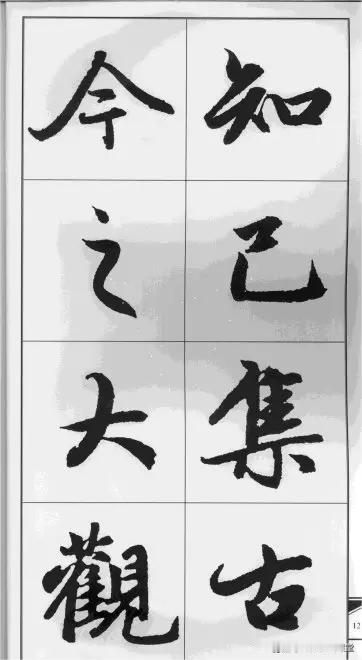 知己集古
今之大觀
12